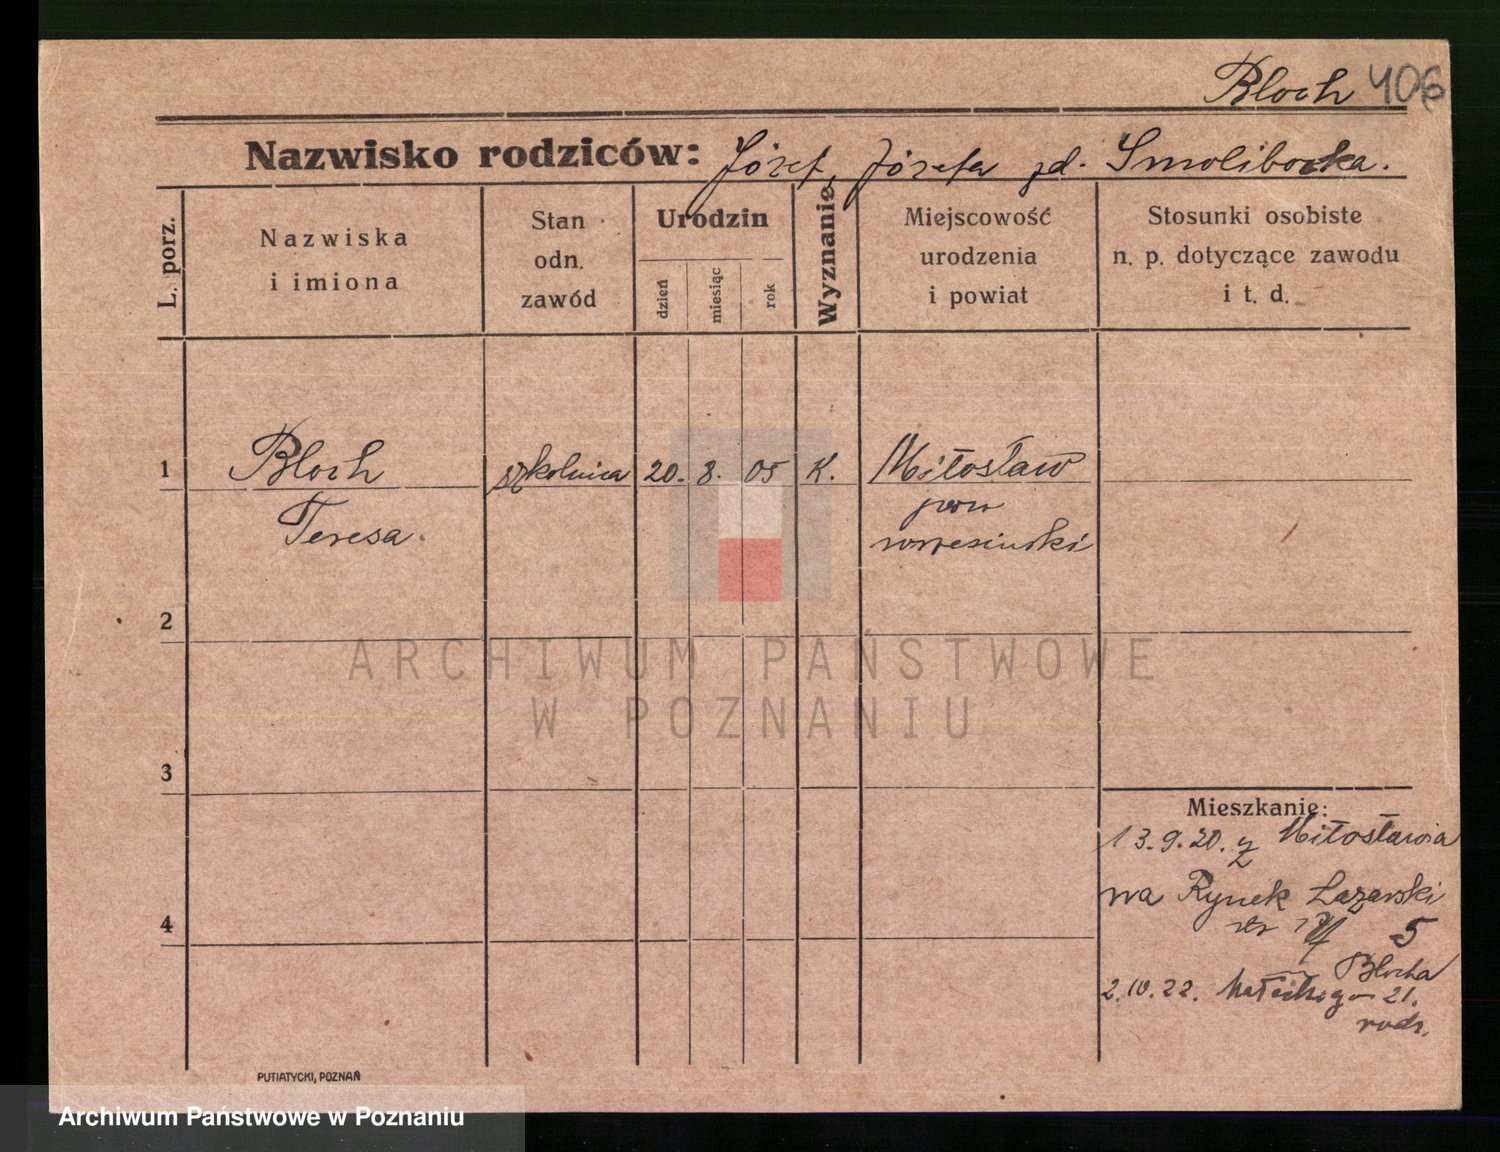 Bloch 406
Nazwisko rodziców: Józef, Józefa zd. Smolibocka.
L. porz.
Nazwiska
i imiona
Stan
odn.
zawód
Urodzin
dzień
miesiąc
rok
Wyznanie
Miejscowość
urodzenia
i powiat
Stosunki osobiste
n. p. dotyczące zawodu
i t. d.
1 Bloch szkolnica 20. 8. 05 K. Miłosław
Teresa. pow
wrzesiński
2
ARCHIWUM PAŃSTWOWE
W POZNANIU
3
Mieszkanie:
13.9.20. z Miłosławia
na Rynek Łazarski
5
4
Blocha
2.10.22. Małeckiego 21.
rodz.
PUTIATYCKI, POZNAŃ
Archiwum Państwowe w Poznaniu